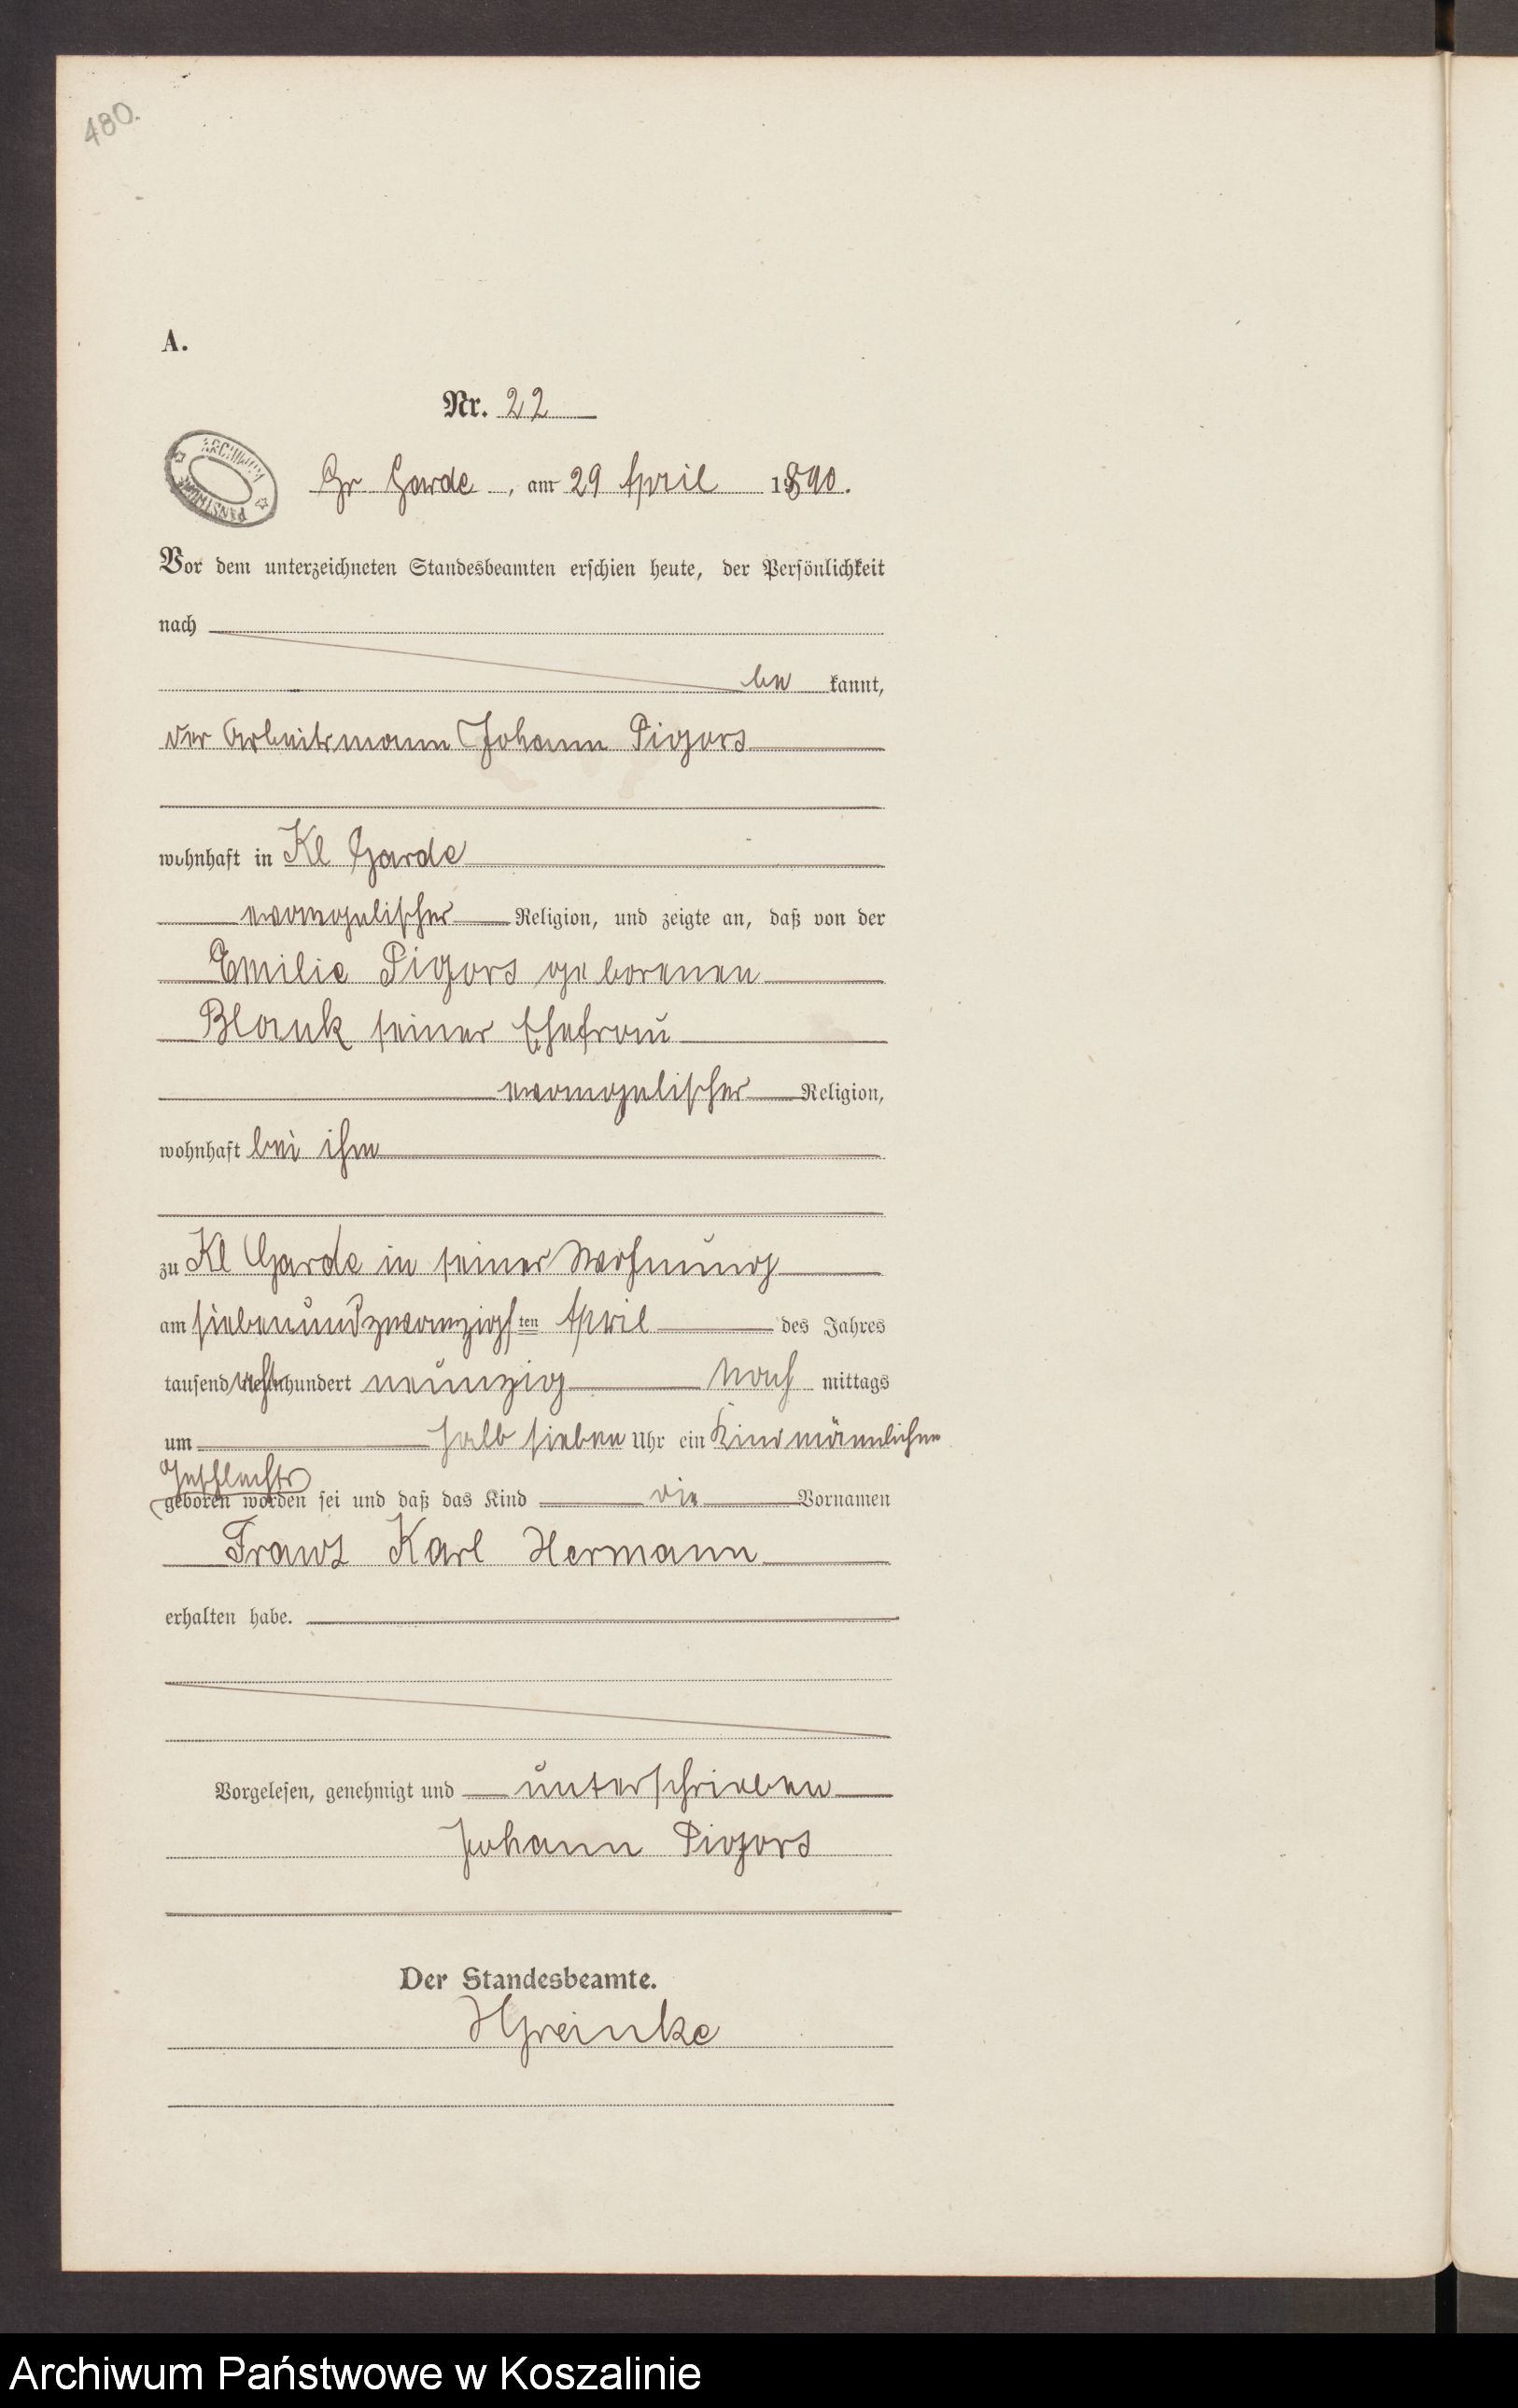 480.
A.
Nr. 22
ARCHIWUM
PAŃSTWOWE
Gr Garde, am 29 April 1890.
Vor dem unterzeichneten Standesbeamten erschien heute, der Persönlichkeit
nach
be kannt,
der Arbeitsmann Johann Pigors
wohnhaft in Kl Garde
evangelischer Religion, und zeigte an, daß von der
Emilie Pigors geborenen
Blank seiner Ehefrau
evangelischer Religion,
wohnhaft bei ihm
zu Kl Garde in seiner Wohnung
am siebenundzwanzigsten April des Jahres
tausend acht hundert neunzig Nach mittags
um halb sieben Uhr ein Kind männlichen
Geschlechts
geboren worden sei und daß das Kind die Vornamen
Franz Karl Hermann
erhalten habe.
Vorgelesen, genehmigt und unterschrieben
Johann Pigors
Der Standesbeamte.
HGreinke
Archiwum Państwowe w Koszalinie